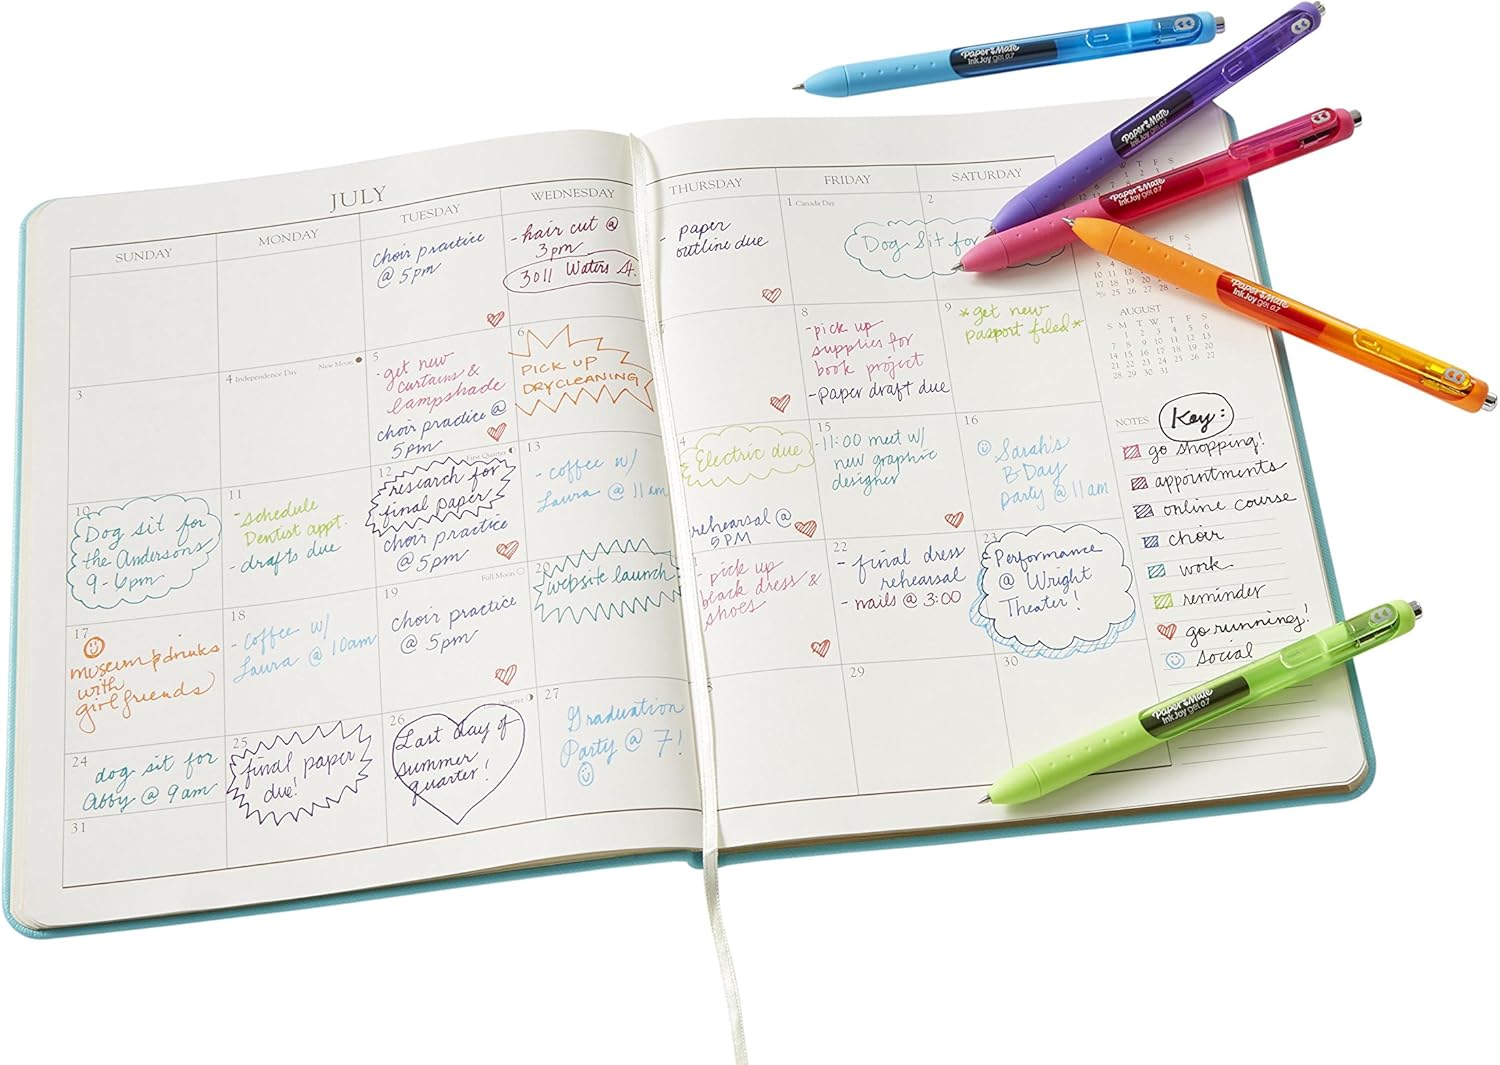 JULY
SUNDAY
MONDAY
TUESDAY
WEDNESDAY
THURSDAY
FRIDAY
SATURDAY
choir practice
@ 5pm
-hair cut @
3pm
3011 Waters St.
- paper
outline due
1 Canada Day
2
Dog Sit for
3
4 Independence Day
New Moon
5
-get new
curtains &
lampshade
choir practice @
5pm
6
PICK UP
DRYCLEANING
7
8
-pick up
supplies for
book project
-Paper draft due
9
*get new
passport filed*
10
Dog sit for
the Andersons
9-6pm
11
-schedule
Dentist appt.
-drafts due
First Quarter
12
research for
final paper
choir practice
@ 5pm
13
-coffee w/
Laura @ 11am
4
Electric due
rehearsal @
5PM
15
-11:00 meet w/
new graphic
designer
16
Sarah's
B-Day
party @ 11am
17
museum & drinks
with
girlfriends
18
-coffee w/
Laura @ 10am
Full Moon
19
choir practice
@ 5pm
20
website launch
-pick up
black dress &
shoes
22
-final dress
rehearsal
-nails @ 3:00
23
Performance
@ Wright
Theater!
24
dog sit for
Abby @ 9am
25
final paper
due!
26
Last day of
summer
quarter!
Quarter
27
Graduation
Party @ 7!
29
30
31
AUGUST
S M T W T F S
1 2 3 4 5 6
7 8 9 10 11 12 13
14 15 16 17 18 19 20
21 22 23 24 25 26 27
28 29 30 31
NOTES
Key:
go shopping!
appointments
online course
choir
work
reminder
go running!
social
Paper Mate
InkJoy gel 0.7
Paper Mate
InkJoy gel 0.7
Paper Mate
InkJoy gel 0.7
Paper Mate
InkJoy gel 0.7
Paper Mate
InkJoy gel 0.7